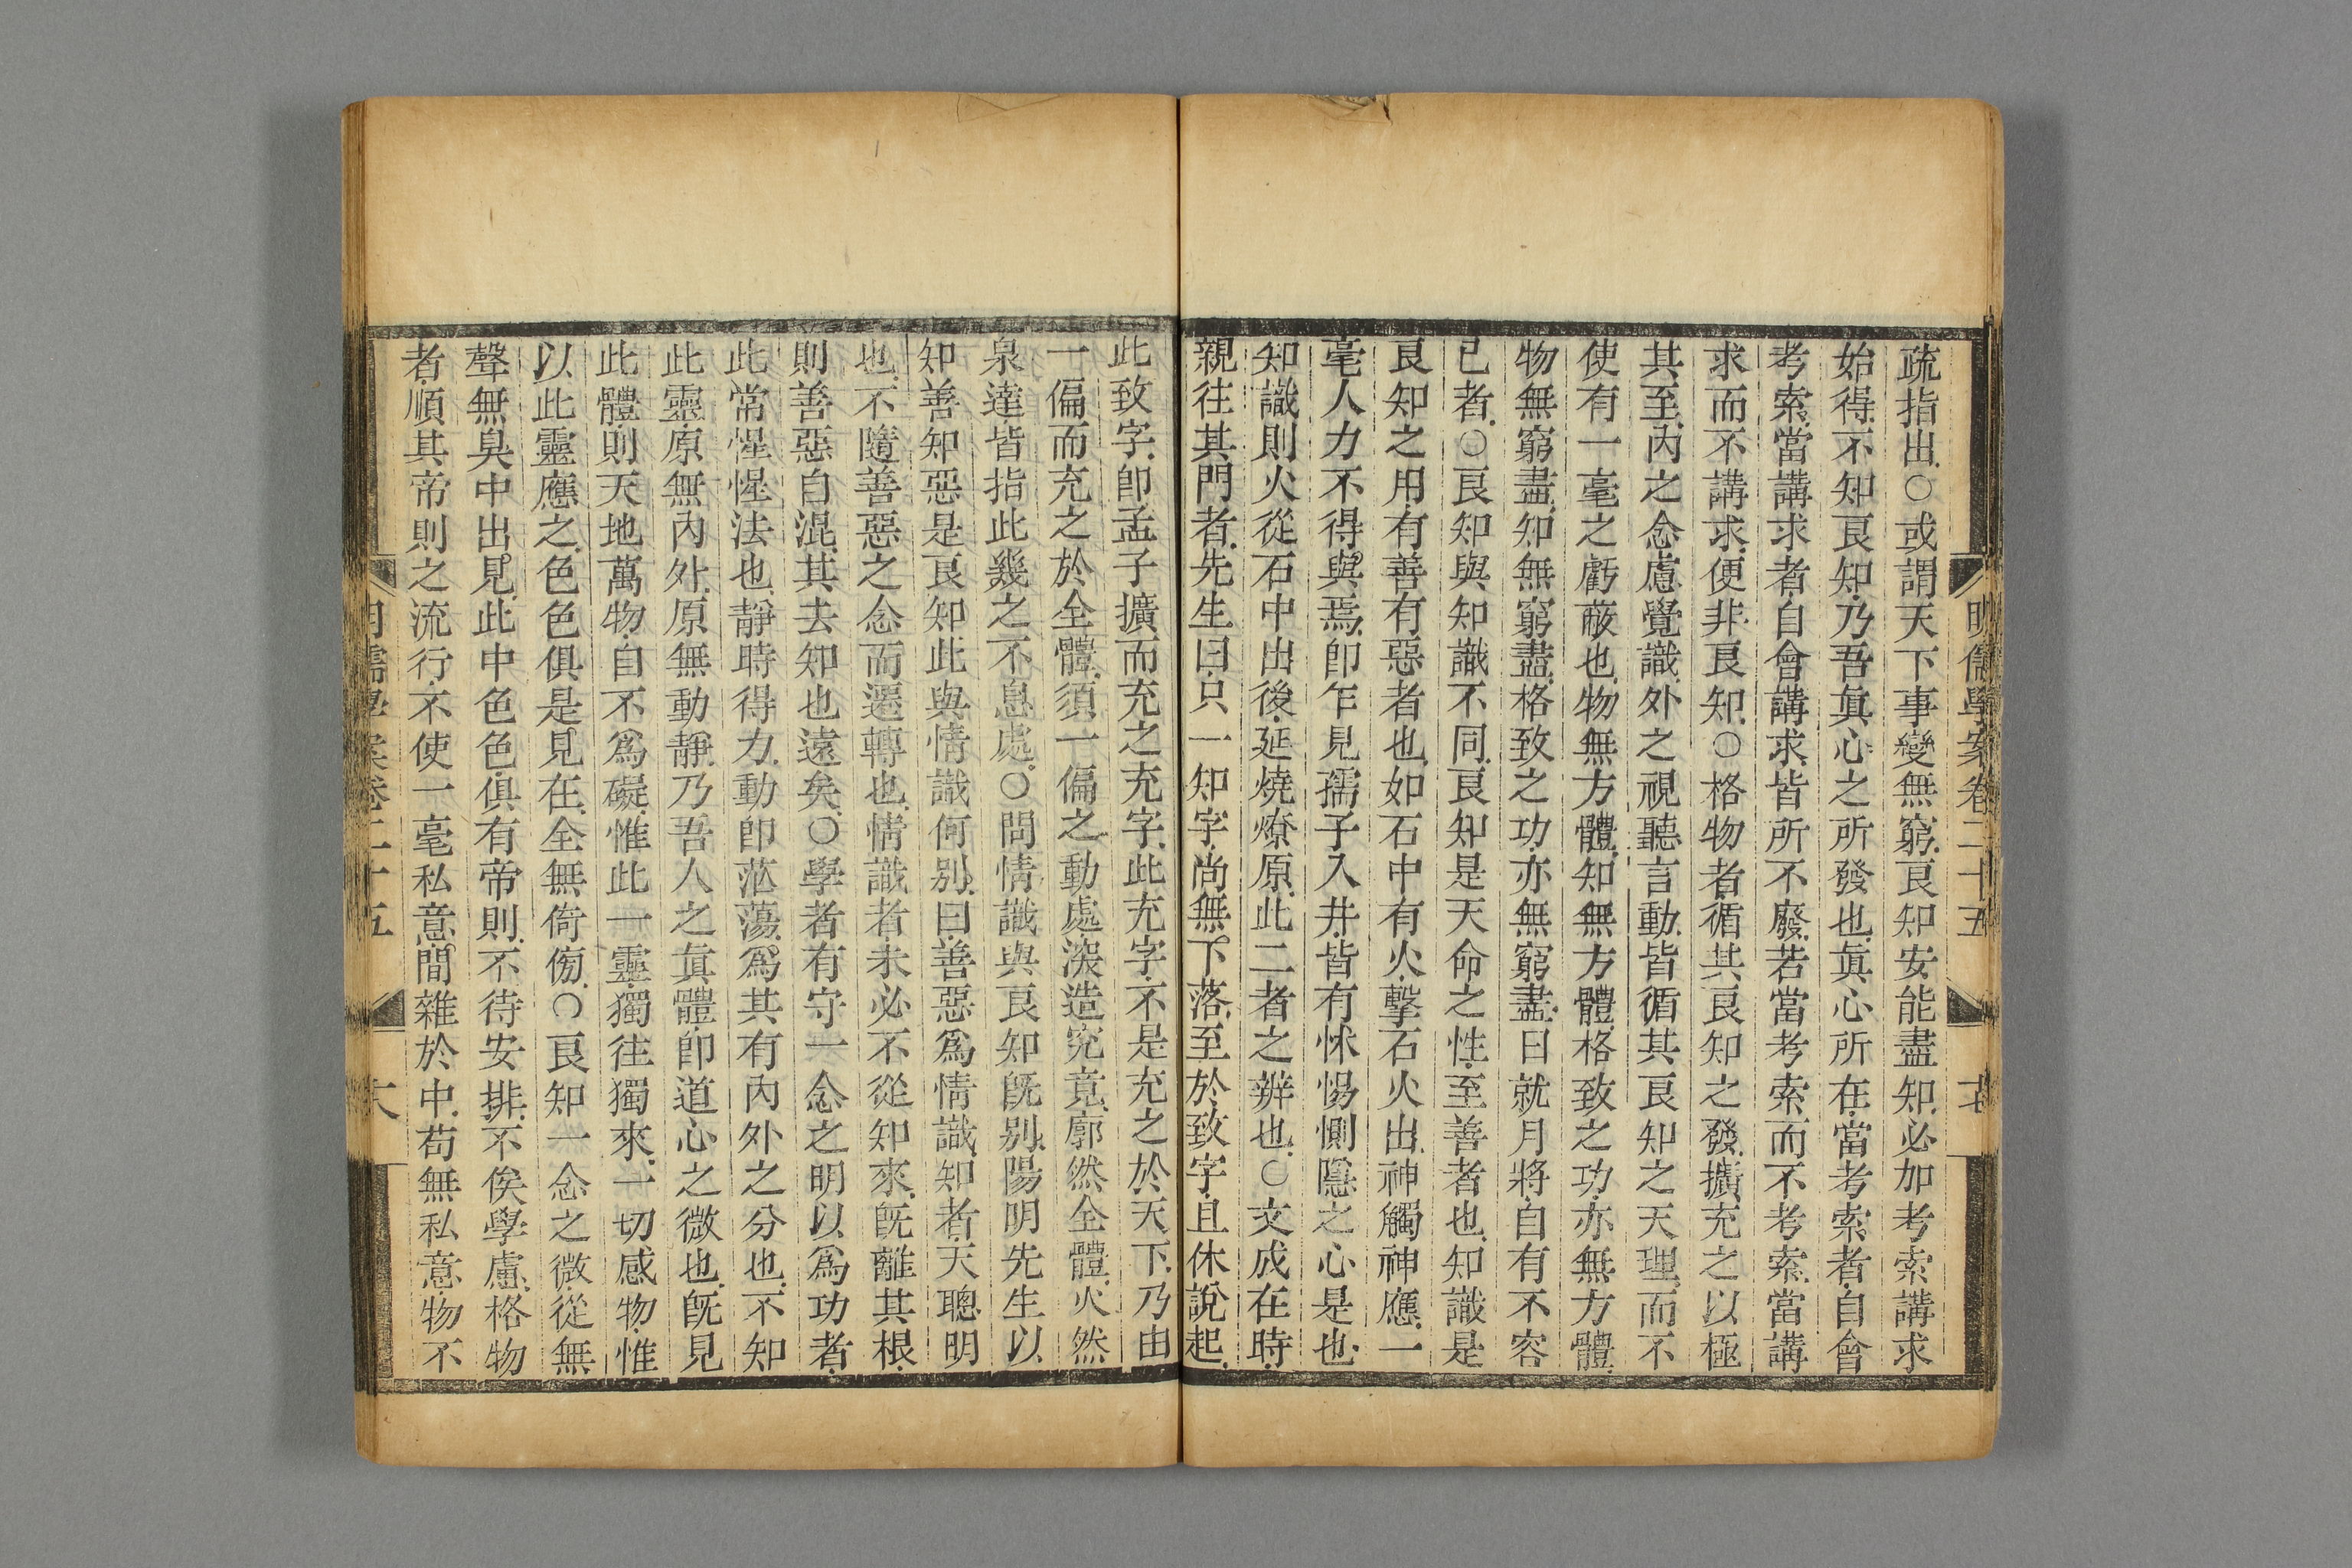 明儒學案卷二十五
十七
疏指出○或謂天下事變無窮良知安能盡知必加考索講求
始得不知良知乃吾眞心之所發也眞心所在當考索者自會
考索當講求者自會講求皆所不廢若當考索而不考索當講
求而不講求便非良知○格物者循其良知之發擴充之以極
其至內之念慮覺識外之視聽言動皆循其良知之天理而不
使有一毫之虧蔽也物無方體知無方體格致之功亦無方體
物無窮盡知無窮盡格致之功亦無窮盡日就月將自有不容
已者○良知與知識不同良知是天命之性至善者也知識是
良知之用有善有惡者也如石中有火擊石火出神觸神應一
毫人力不得與焉卽乍見孺子入井皆有怵惕惻隱之心是也
知識則火從石中出後延燒燎原此二者之辨也○文成在時
親往其門者先生曰只一知字尚無下落至於致字且休說起
此致字卽孟子擴而充之充字此充字不是充之於天下乃由
一偏而充之於全體須一偏之動處深造究竟廓然全體火然
泉達皆指此幾之不息處○問情識與良知旣别陽明先生以
知善知惡是良知此與情識何别曰善惡爲情識知者天聰明
也不隨善惡之念而遷轉也情識者未必不從知來旣離其根
則善惡自混其去知也遠矣○學者有守一念之明以爲功者
此常惺惺法也靜時得力動卽茫蕩爲其有內外之分也不知
此靈原無內外原無動靜乃吾人之眞體卽道心之微也旣見
此體則天地萬物自不爲礙惟此一靈獨往獨來一切感物惟
以此靈應之色色俱是見在全無倚傍○良知一念之微從無
聲無臭中出見此中色色俱有帝則不待安排不俟學慮格物
者順其帝則之流行不使一毫私意間雜於中苟無私意物不
明儒學案卷二十五